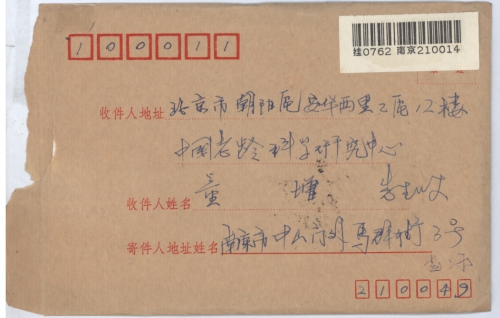 100011
挂0762 南京210014
收件人地址 北京市朝阳区安华西里二区12楼
中国老龄科学研究中心
收件人姓名 董 先生收
寄件人地址姓名 南京市中山门外马群街3号
210049